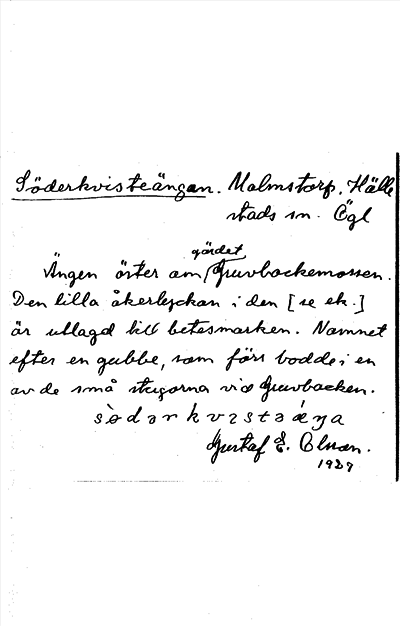 Söderkvisteängan. Malmstorp. Hälle
stads sn. Ögl
Ängen öster om gärdet Gruvbackemossen.
Den lilla åkerlyckan i den [se ek.]
är utlagd till betesmarken. Namnet
efter en gubbe, som förr bodde i en
av de små stugorna vid Gruvbacken.
sö̀dərkvɪstəǽŋa
Gustaf E. Olsson.
1929